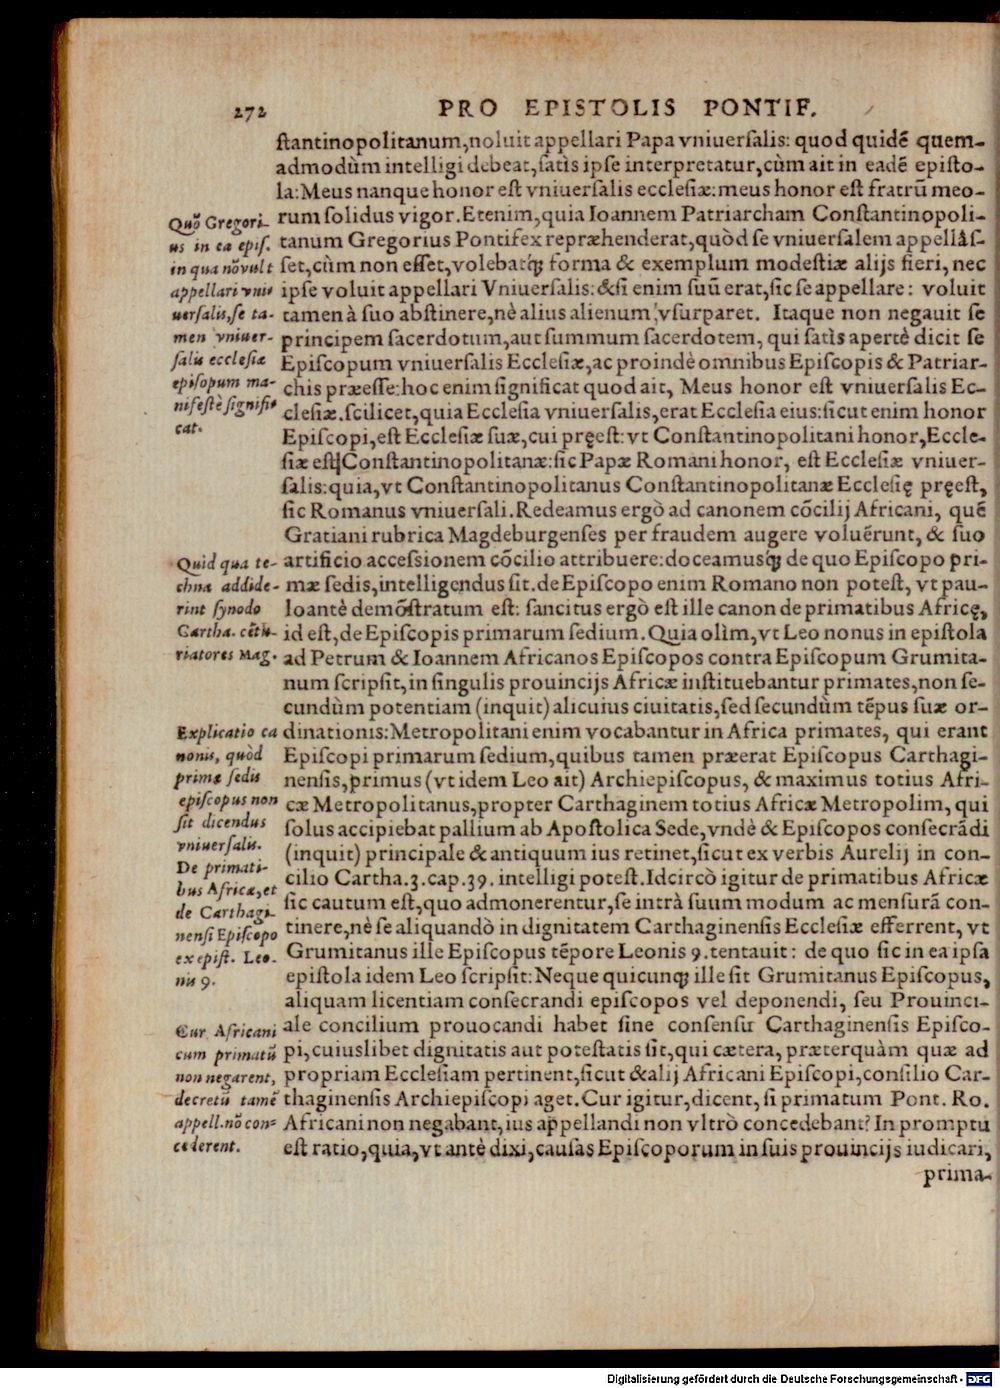 272 PRO EPISTOLIS PONTIF.
stantinopolitanum,noluit appellari Papa vniuersalis: quod quidẽ quem-
admodùm intelligi debeat,satìs ipse interpretatur,cùm ait in eadẽ episto-
la:Meus nanque honor est vniuersalis ecclesiæ:meus honor est fratrũ meo-
rum solidus vigor.Etenim,quia Ioannem Patriarcham Constantinopoli-
tanum Gregorius Pontifex repræhenderat,quòd se vniuersalem appellâs-
set,cùm non esset,volebatq; forma & exemplum modestiæ alijs fieri, nec
ipse voluit appellari Vniuersalis:&si enim suũ erat,sic se appellare: voluit
tamen à suo abstinere,nè alius alienum vsurparet. Itaque non negauit se
principem sacerdotum,aut summum sacerdotem, qui satìs apertè dicit se
Episcopum vniuersalis Ecclesiæ,ac proindè omnibus Episcopis & Patriar-
chis præesse:hoc enim significat quod ait, Meus honor est vniuersalis Ec-
clesiæ.scilicet,quia Ecclesia vniuersalis,erat Ecclesia eius:sicut enim honor
Episcopi,est Ecclesiæ suæ,cui pręest:vt Constantinopolitani honor,Eccle-
siæ est Constantinopolitanæ:sic Papæ Romani honor, est Ecclesiæ vniuer-
salis:quia,vt Constantinopolitanus Constantinopolitanæ Ecclesię pręest,
sic Romanus vniuersali.Redeamus ergò ad canonem cõcilij Africani, quẽ
Gratiani rubrica Magdeburgenses per fraudem augere voluẽrunt, & suo
artificio accessionem cõcilio attribuere:doceamusq; de quo Episcopo pri-
mæ sedis,intelligendus sit.de Episcopo enim Romano non potest, vt pau-
loantè demõstratum est: sancitus ergò est ille canon de primatibus Africę,
id est,de Episcopis primarum sedium.Quia olìm,vt Leo nonus in epistola
ad Petrum & Ioannem Africanos Episcopos contra Episcopum Grumita-
num scripsit,in singulis prouincijs Africæ instituebantur primates,non se-
cundùm potentiam (inquit) alicuius ciuitatis,sed secundùm tẽpus suæ or-
dinationis:Metropolitani enim vocabantur in Africa primates, qui erant
Episcopi primarum sedium,quibus tamen præerat Episcopus Carthagi-
nensis,primus (vt idem Leo ait) Archiepiscopus, & maximus totius Afri-
cæ Metropolitanus,propter Carthaginem totius Africæ Metropolim, qui
solus accipiebat pallium ab Apostolica Sede,vndè & Episcopos consecrãdi
(inquit) principale & antiquum ius retinet,sicut ex verbis Aurelij in con-
cilio Cartha.3.cap.39. intelligi potest.Idcircò igitur de primatibus Africæ
sic cautum est,quo admonerentur,se intrà suum modum ac mensurã con-
tinere,nè se aliquandò in dignitatem Carthaginensis Ecclesiæ efferrent, vt
Grumitanus ille Episcopus tẽpore Leonis 9.tentauit: de quo sic in ea ipsa
epistola idem Leo scripsit:Neque quicunq; ille sit Grumitanus Episcopus,
aliquam licentiam consecrandi episcopos vel deponendi, seu Prouinci-
ale concilium prouocandi habet sine consensu Carthaginensis Episco-
pi,cuiuslibet dignitatis aut potestatis sit,qui cætera, præterquàm quæ ad
propriam Ecclesiam pertinent,sicut & alij Africani Episcopi,consilio Car-
thaginensis Archiepiscopi aget.Cur igitur,dicent, si primatum Pont. Ro.
Africani non negabant,ius appellandi non vltrò concedebant? In promptu
est ratio,quia,vt antè dixi,causas Episcoporum in suis prouincijs iudicari,
prima-
Quõ Gregori-
us in ea epis.
in qua nõ vult
appellari vni-
uersalis,se ta-
men vniuer-
salis ecclesiæ
episopum ma-
nifestè signifi-
cat.
Quid qua te-
chna addide-
rint synodo
Cartha. cẽtu-
riatores Mag.
Explicatio ca
nonis, quòd
primæ sedis
episcopus non
sit dicendus
vniuersalis.
De primati-
bus Africæ,et
de Carthagi-
nensi Episcopo
ex epist. Leo-
nis 9.
Cur Africani
cum primatũ
non negarent,
decretũ tamẽ
appell.nõ con-
cederent.
Digitalisierung gefördert durch die Deutsche Forschungsgemeinschaft - DFG